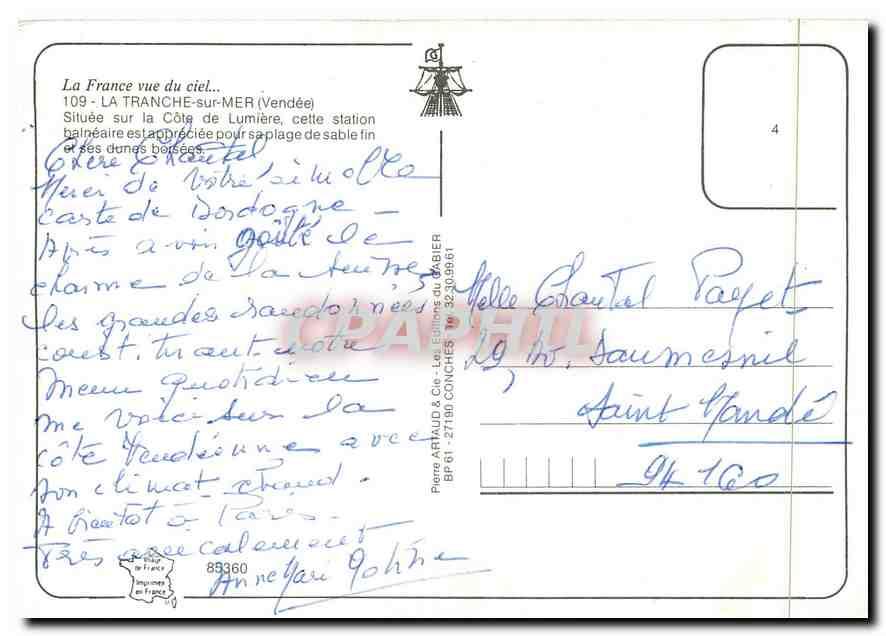 La France vue du ciel...
109 - LA TRANCHE-sur-MER (Vendée)
Située sur la Côte de Lumière, cette station
balnéaire est appréciée pour sa plage de sable fin
et ses dunes boisées.
Chère Chantal
Merci de votre
carte de Dordogne -
Après avoir goûté le
charme de la
les grandes randonnées
constituant notre
menu quotidien
me voici sur la
côte Vendéenne avec
son climat chaud.
A bientôt à Paris.
Très amicalement
Anne Marie
85360
Image
de France
Imprimée
en France
Pierre ARTAUD & Cie - Les Editions du GABIER
BP 61 - 27190 CONCHES - Tél. 32.30.99.61
CPAPHIL
4
Melle Chantal Payet
29, av. Daumesnil
Saint Mandé
94160